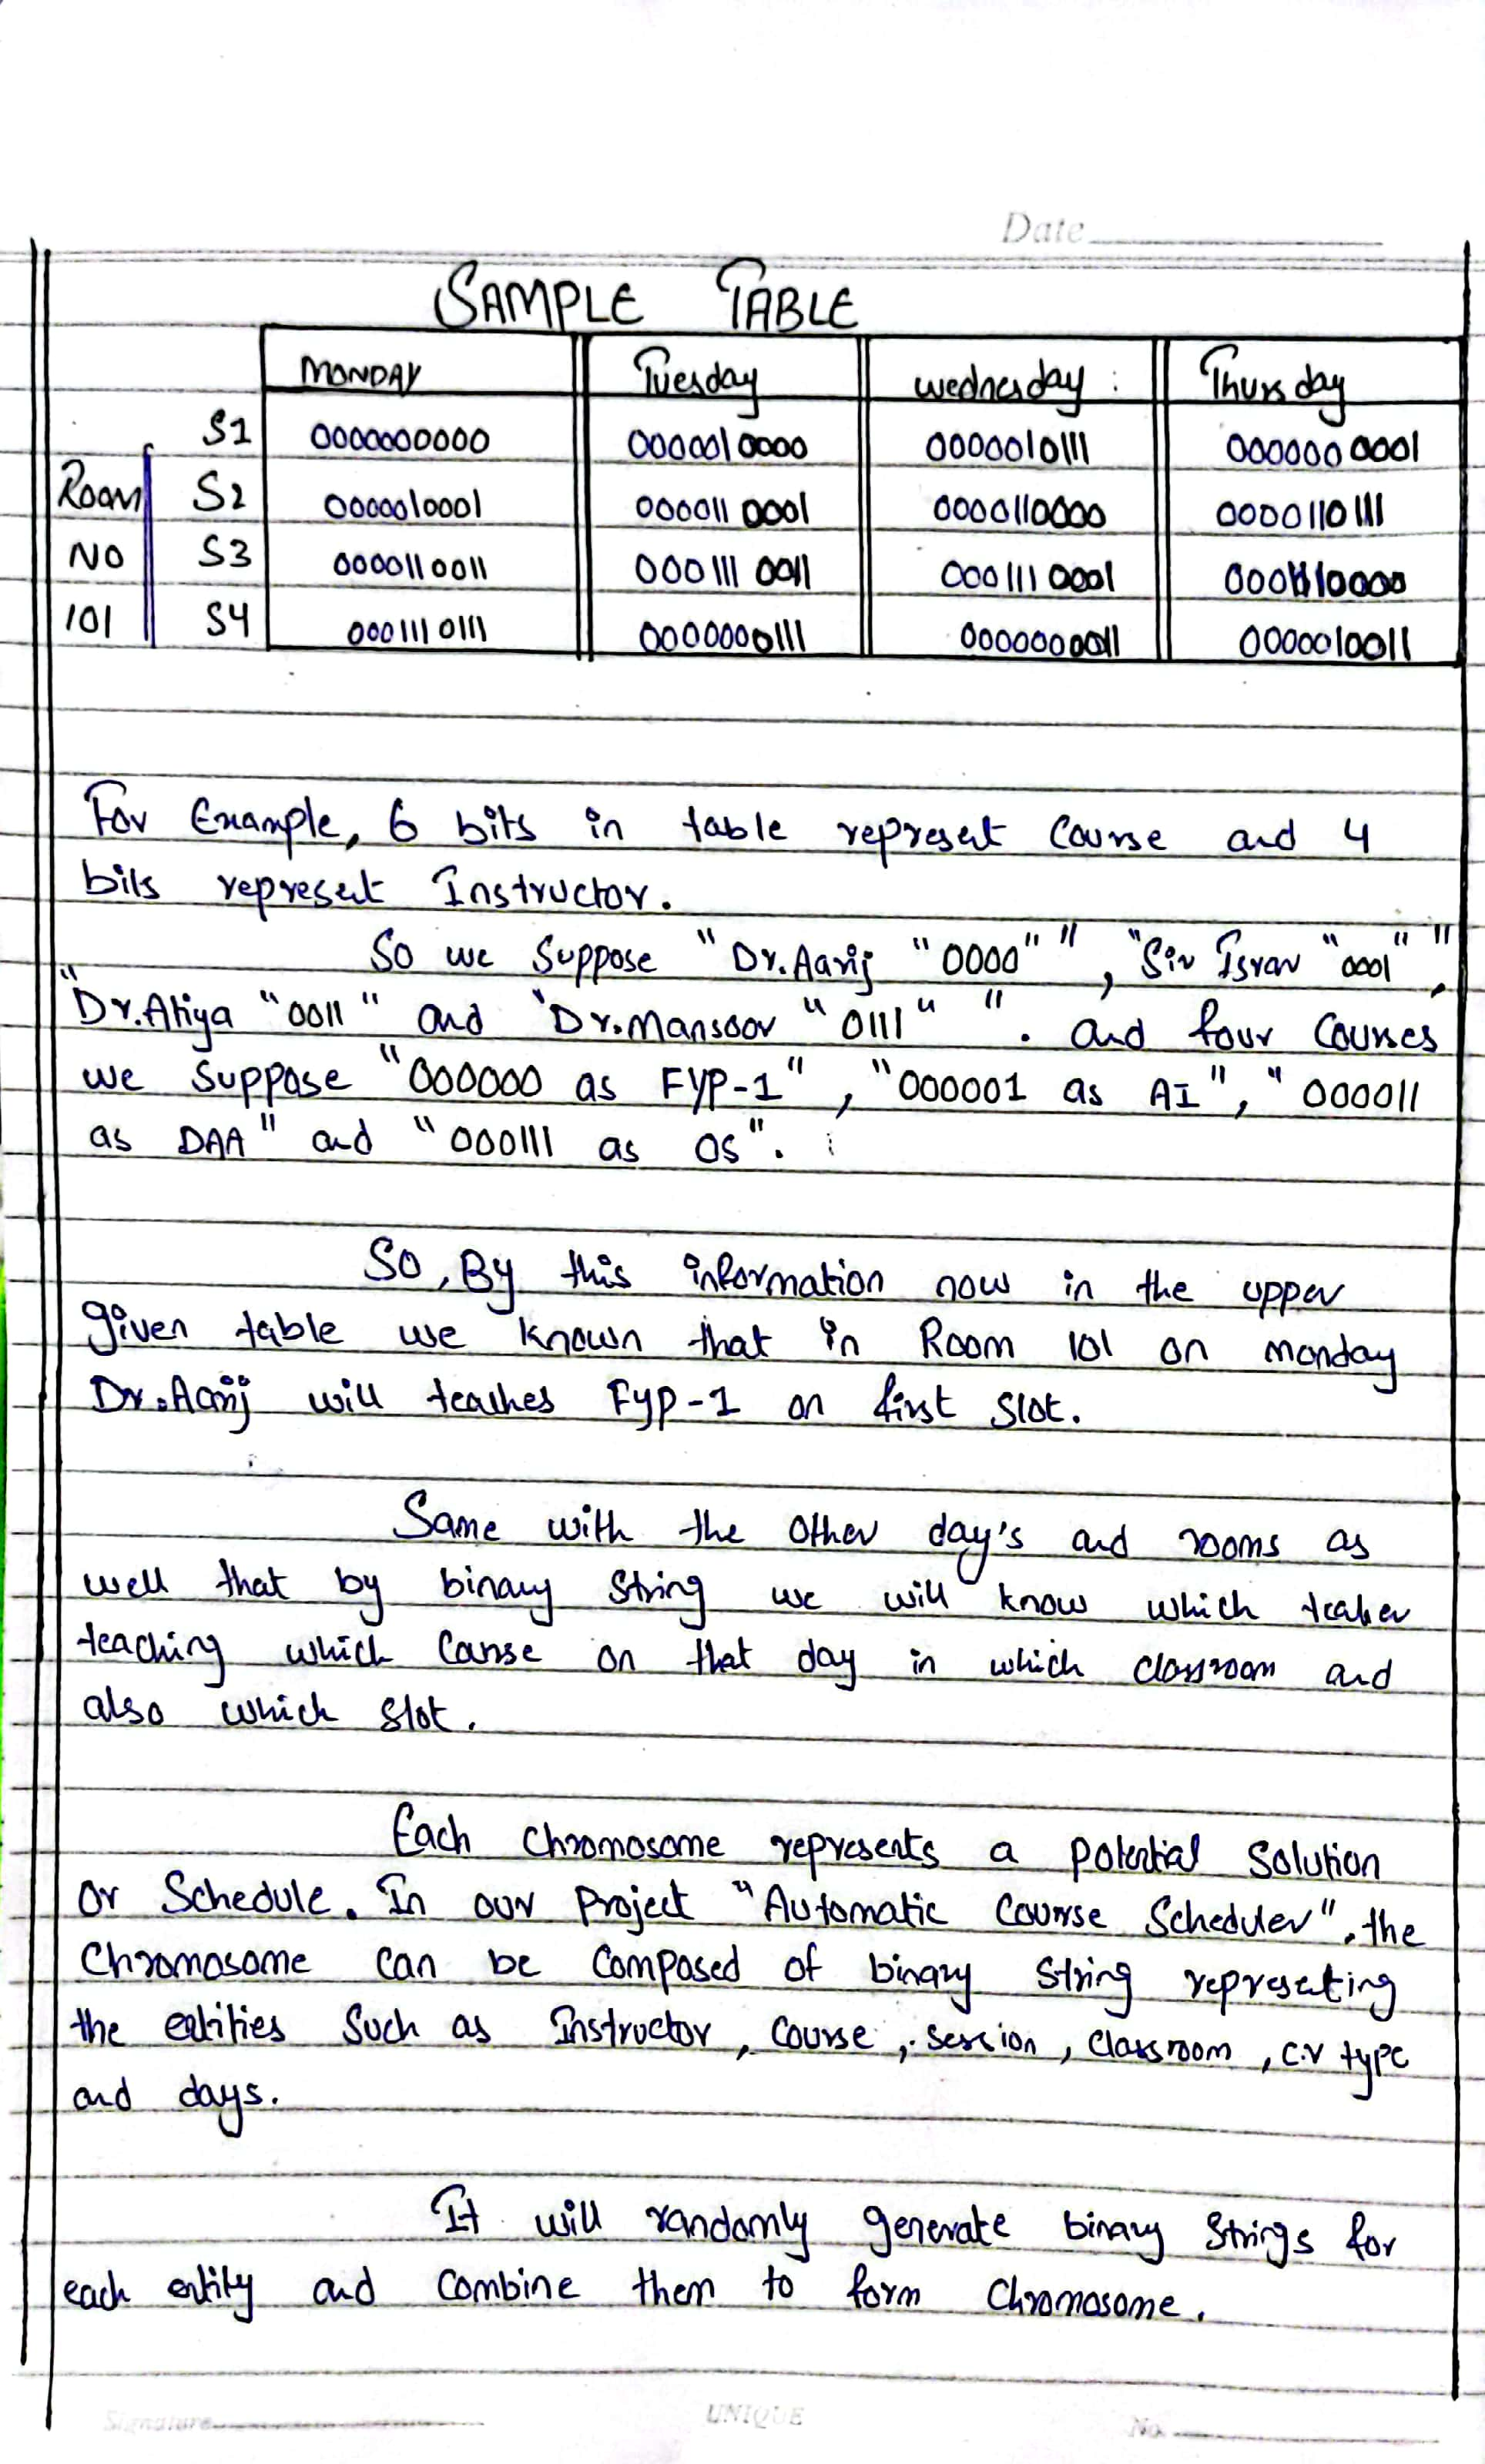 Date
SAMPLE TABLE
MONDAY Tuesday wednesday : Thursday
S1 0000000000 0000010000 0000010111 0000000001
Room S2 0000010001 0000110001 0000110000 0000110111
NO S3 0000110011 0001110011 0001110001 0001110000
101 S4 0001110111 0000000111 0000000011 0000010011
For Example, 6 bits in table represent Course and 4
bits represent Instructor.
So we Suppose "Dr.Aarij "0000"", "Sir Israr "0001"",
"Dr.Atiya "0011" and "Dr.Mansoor "0111" ". and four Courses
we Suppose "000000 as FYP-1", "000001 as AI", "000011
as DAA" and "000111 as OS".
So, By this information now in the upper
given table we known that in Room 101 on monday
Dr.Aarij will teaches FYP-1 on first slot.
Same with the other day's and rooms as
well that by binary String we will know which teaher
teaching which Carse on that day in which classroom and
also which slot.
Each Chromosome represents a potential Solution
or Schedule. In our Project "Automatic Course Scheduler", the
Chromosome can be Composed of binary string representing
the entities Such as Instructor, Course, session, Classroom, C.r type
and days.
It will randomly generate binary Strings for
each entity and Combine them to form Chromosome.
Signature UNIQUE No.